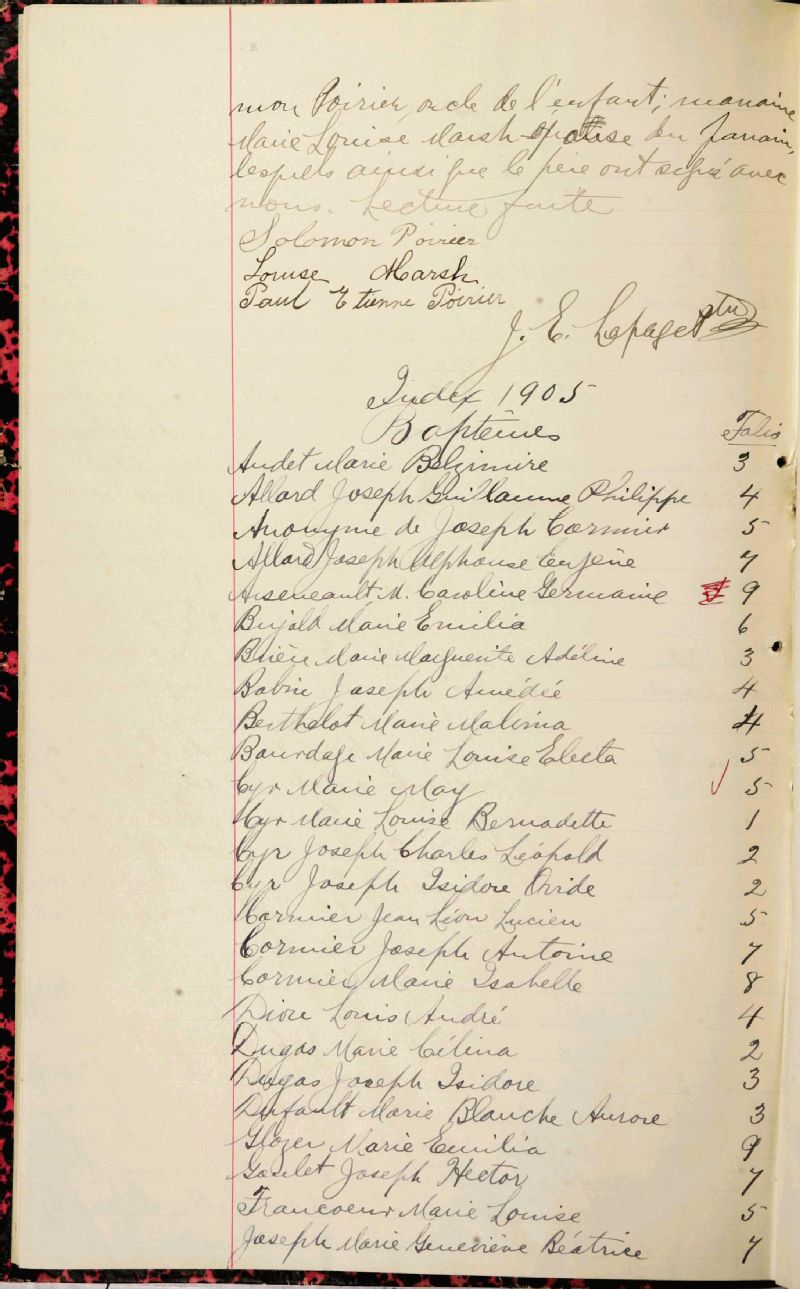 mon Poirier, oncle de l'enfant; marraine
Marie Louise Marsh épouse du parrain,
lesquels ainsi que le père ont signé avec
nous. Lecture faite
Solomon Poirier
Louise Marsh
Paul Etienne Poirier
J. E. Lepage ptre
Index 1905
Baptêmes Folio
Audet Marie Belzimire 3
Allard Joseph Guillaume Philippe 4
Anonyme de Joseph Cormier 5
Allard Joseph Alphonse Eugène 7
Arseneault M. Caroline Germaine 9
Bujold Marie Emilia 6
Marie Marguerite Adéline 3
Babin Joseph Amédée 4
Berthelot Marie Malvina 4
Bourdage Marie Louise Electa 5
Cyr Marie May 5
Cyr Marie Louise Bernadette 1
Cyr Joseph Charles Léopold 2
Cyr Joseph Isidore Ovide 2
Cormier Jean Léon Lucien 5
Cormier Joseph Antoine 7
Cormier Marie Isabelle 8
Dion Louis André 4
Dugas Marie Célina 2
Dugas Joseph Isidore 3
Dufault Marie Blanche Aurore 3
Marie Emilia 9
Goulet Joseph Hector 7
Francoeur Marie Louise 5
Joseph Marie Geneviève Béatrice 7